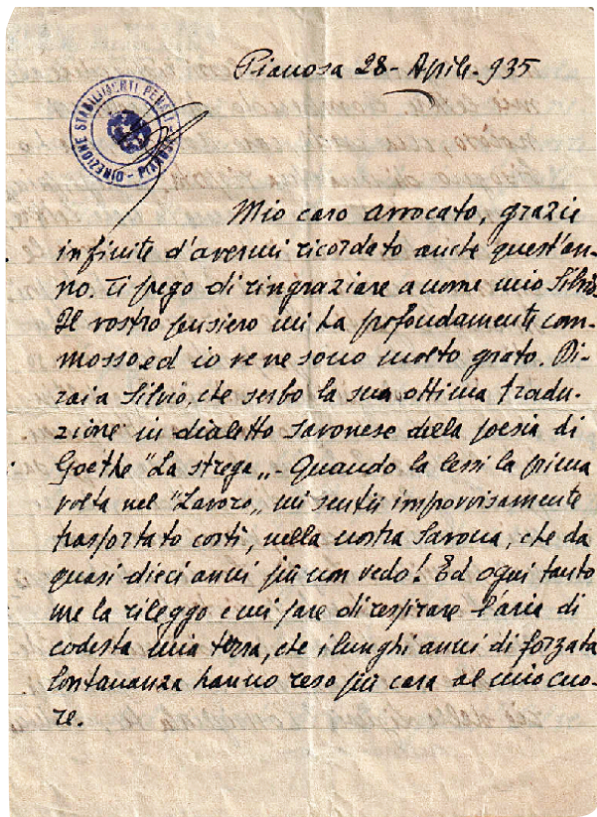 Pianosa 28 - Aprile - 935
DIREZIONE STABILIMENTI PENALI - PIANOSA
Mio caro avvocato, grazie
infinite d'avermi ricordato anche quest'an-
no. Ti prego di ringraziare a nome mio Silvio.
Il vostro pensiero mi ha profondamente com-
mosso ed io ve ne sono molto grato. Di-
rai a Silvio, che serbo la sua ottima tradu-
zione in dialetto savonese della poesia di
Goethe "La strega„ - Quando la lessi la prima
volta nel "Lavoro„ mi sentii improvvisamente
trasportato costì, nella nostra Savona, che da
quasi dieci anni più non vedo! Ed ogni tanto
me la rileggo e mi pare di respirare l'aria di
codesta mia terra, che i lunghi anni di forzata
lontananza hanno reso più cara al mio cuo-
re.